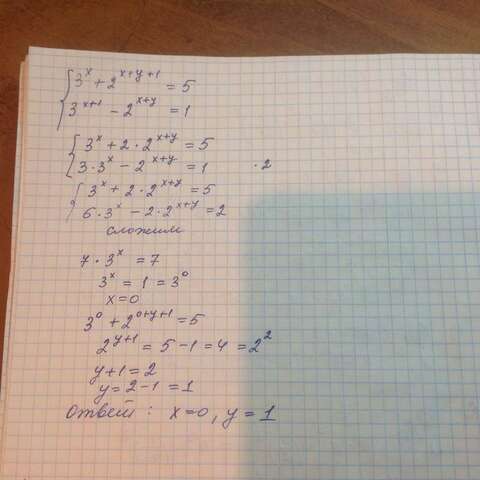 {3^x + 2^{x+y+1} = 5
3^{x+1} - 2^{x+y} = 1
{3^x + 2 · 2^{x+y} = 5
3 · 3^x - 2^{x+y} = 1 · 2
{3^x + 2 · 2^{x+y} = 5
6 · 3^x - 2 · 2^{x+y} = 2
сложим
7 · 3^x = 7
3^x = 1 = 3^0
x = 0
3^0 + 2^{0+y+1} = 5
2^{y+1} = 5 - 1 = 4 = 2^2
y + 1 = 2
y = 2 - 1 = 1
ответ : x = 0, y = 1